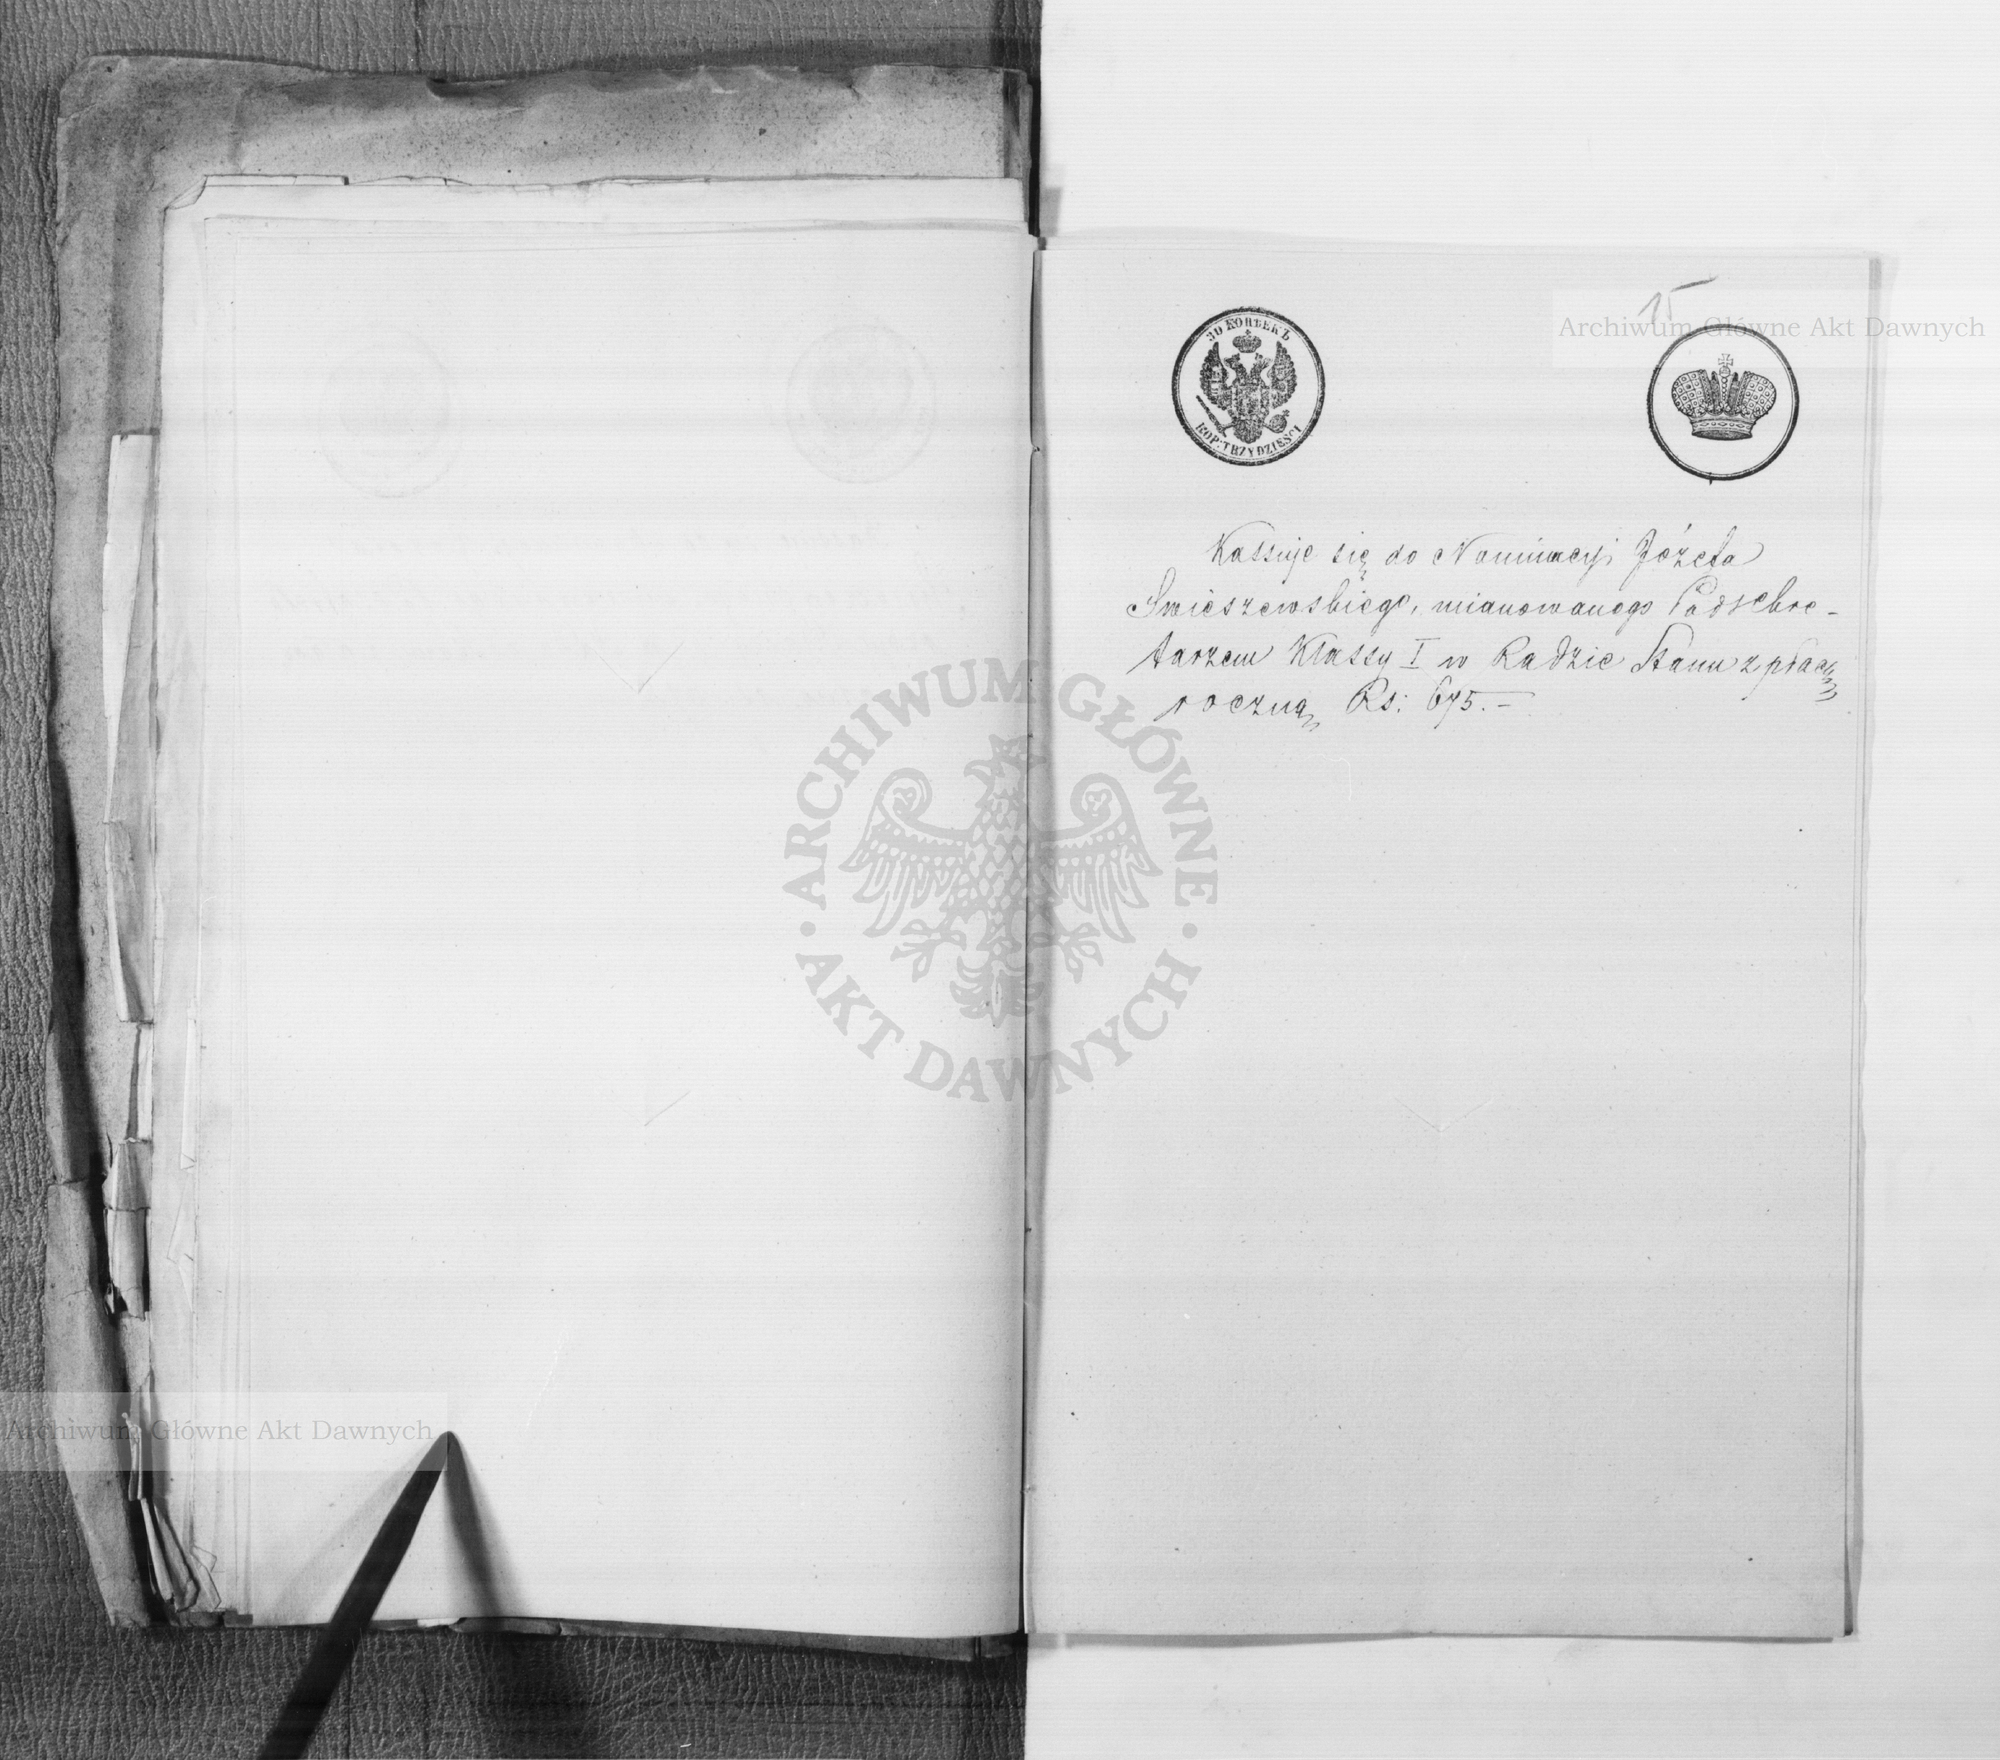 15
Archiwum Główne Akt Dawnych
30 КОПѢЕКЪ
KOP: TRZYDZIEŚCI
Kassuje się do Nominacyi Józefa
Swieszewskiego, mianowanego Podsekre-
tarzem Klassy I w Radzie Stanu z płacą
roczną Rs: 675.-
ARCHIWUM GŁÓWNE
AKT DAWNYCH
Archiwum Główne Akt Dawnych